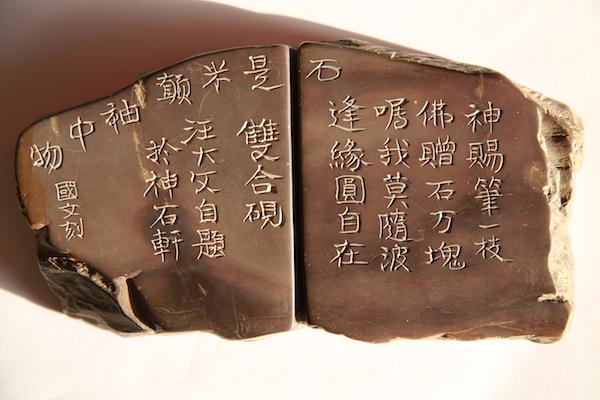 神賜筆一枝
佛贈石万塊
嘱我莫隨波
逢緣圓自在
石是米顛袖中物
雙合硯
汪大文自題
於神石軒
國文刻